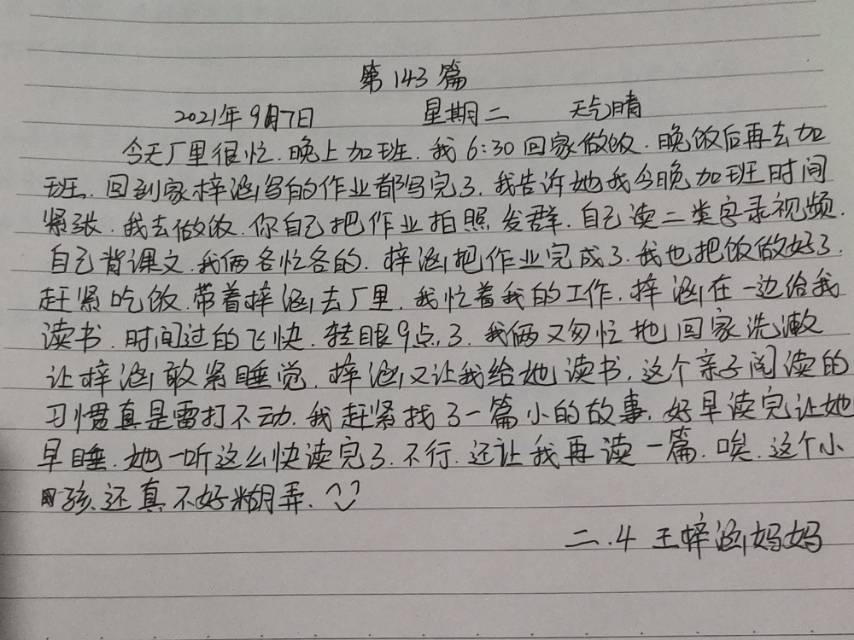 第143篇
2021年9月7日 星期二 天气晴
今天厂里很忙.晚上加班.我6:30回家做饭.晚饭后再去加
班.回到家梓涵写的作业都写完了.我告诉她我今晚加班时间
紧张.我去做饭.你自己把作业拍照发群.自己读二类字录视频.
自己背课文.我俩各忙各的.梓涵把作业完成了.我也把饭做好了.
赶紧吃饭.带着梓涵去厂里.我忙着我的工作.梓涵在一边给我
读书.时间过的飞快.转眼9点了.我俩又匆忙地回家洗漱
让梓涵敢紧睡觉.梓涵又让我给她读书.这个亲子阅读的
习惯真是雷打不动.我赶紧找了一篇小的故事.好早读完让她
早睡.她一听这么快读完了.不行.还让我再读一篇.唉.这个小
孩还真不好糊弄.
二.4 王梓涵妈妈